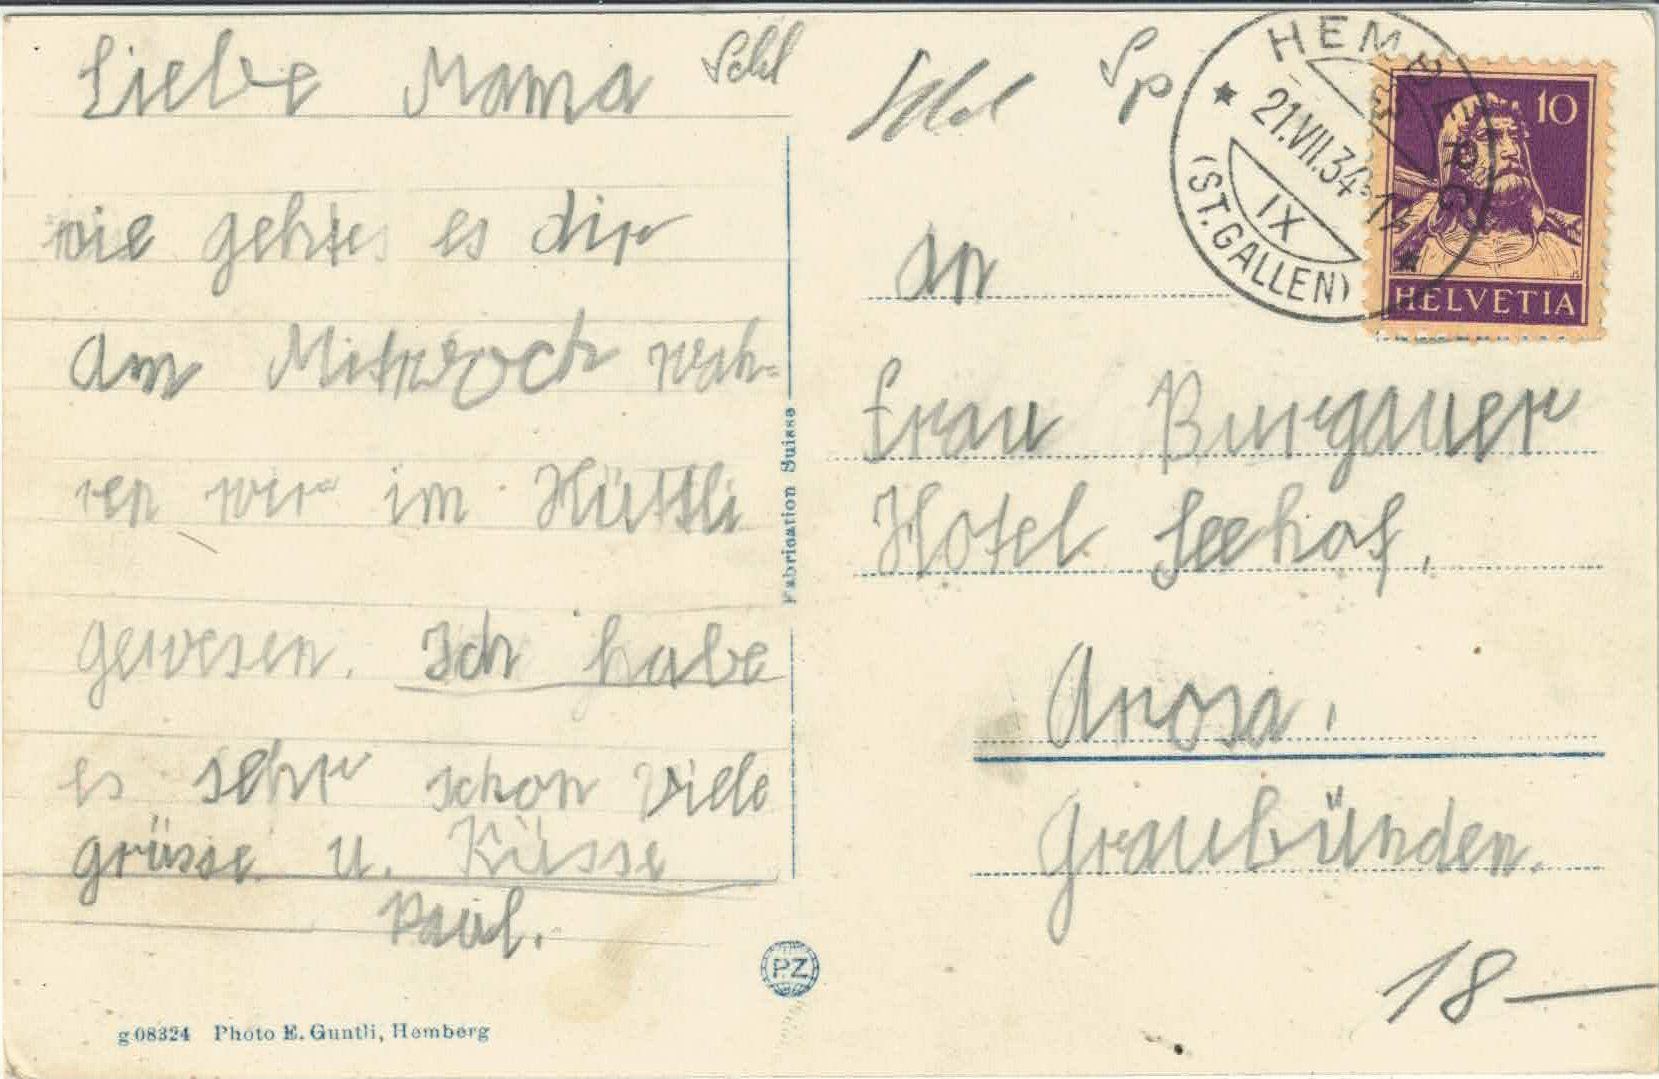 Liebe Mama
wie geht es es dir
Am Mittwoch wah-
ren wir im Hüttli
gewesen. Ich habe
es sehr schon Viele
grüsse u. Küsse
Paul.
g 08324 Photo E. Guntli, Hemberg
Fabrication Suisse
PZ
Schl
Sp
HEMBERG
21.VII.34
IX
(ST. GALLEN)
10
HELVETIA
An
Frau Burgauer
Hotel Seehof,
Arosa.
Graubünden.
18—